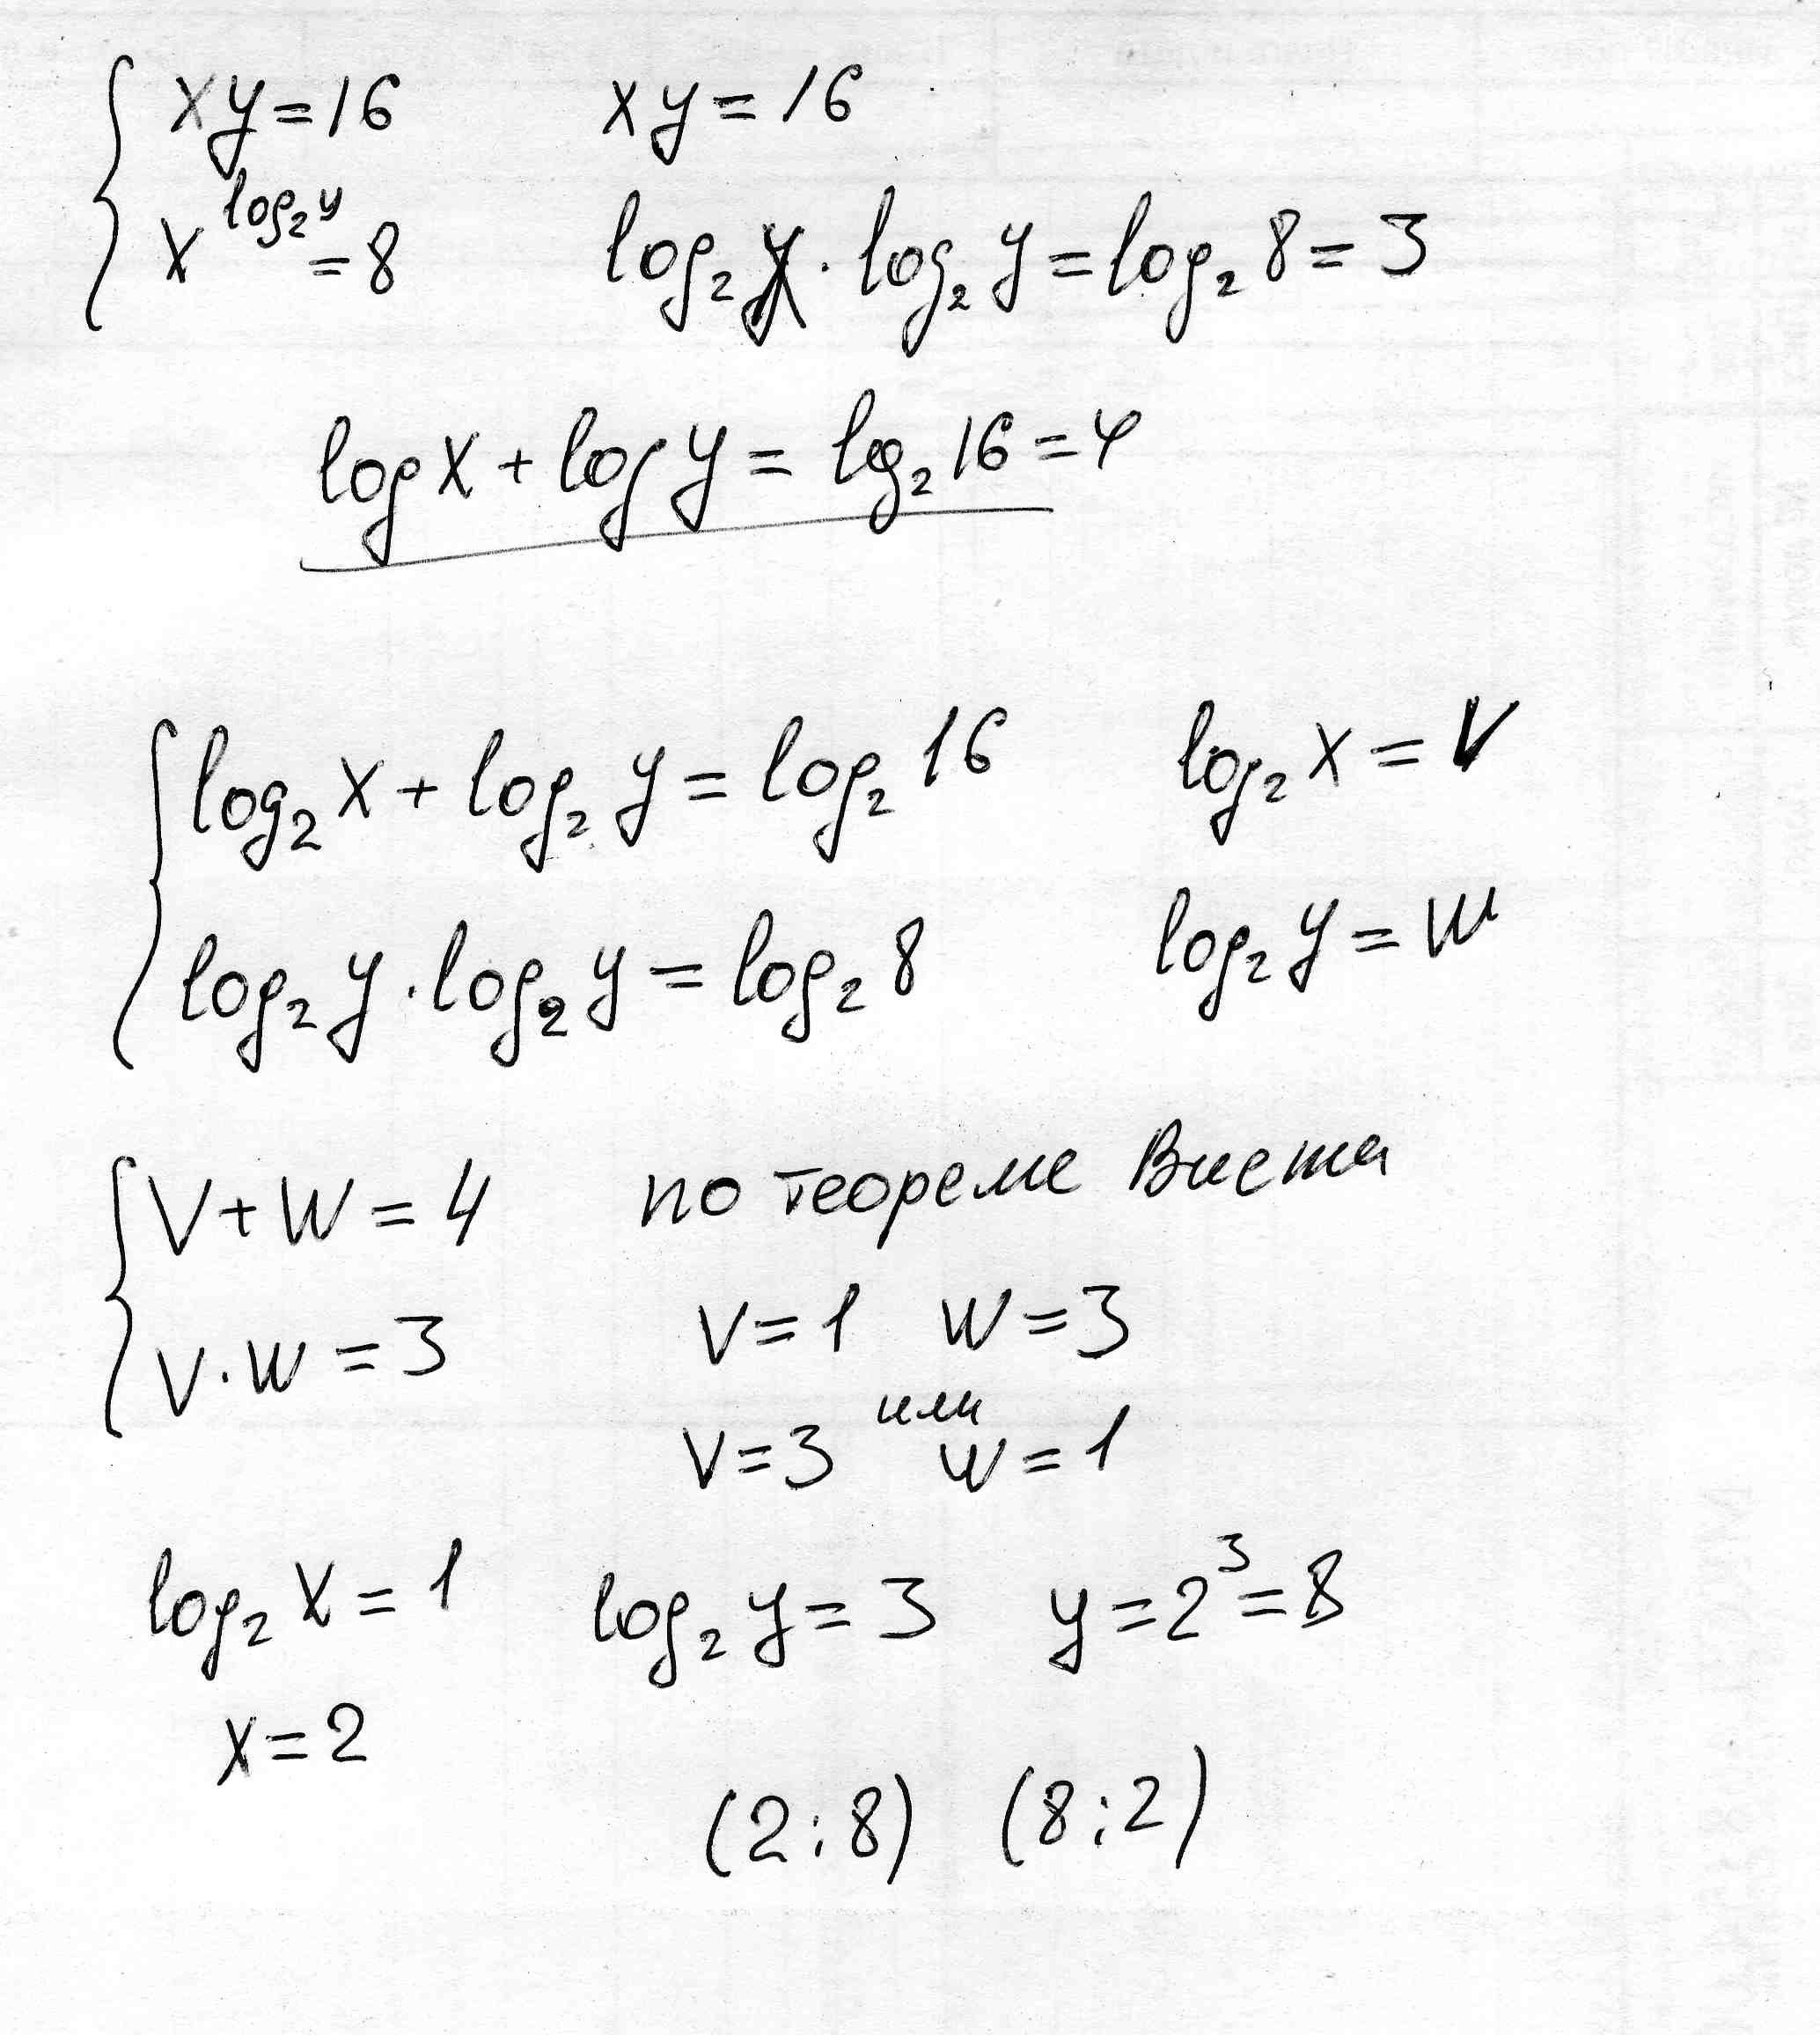 xy=16 xy=16
x^log₂y =8 log₂x·log₂y=log₂8=3
log x+log y=log₂16=4
log₂x+log₂y=log₂16 log₂x=V
log₂y·log₂y=log₂8 log₂y=W
V+W=4 по теореме Виета
V·W=3 V=1 W=3
или
V=3 W=1
log₂x=1 log₂y=3 y=2³=8
x=2
(2;8) (8;2)